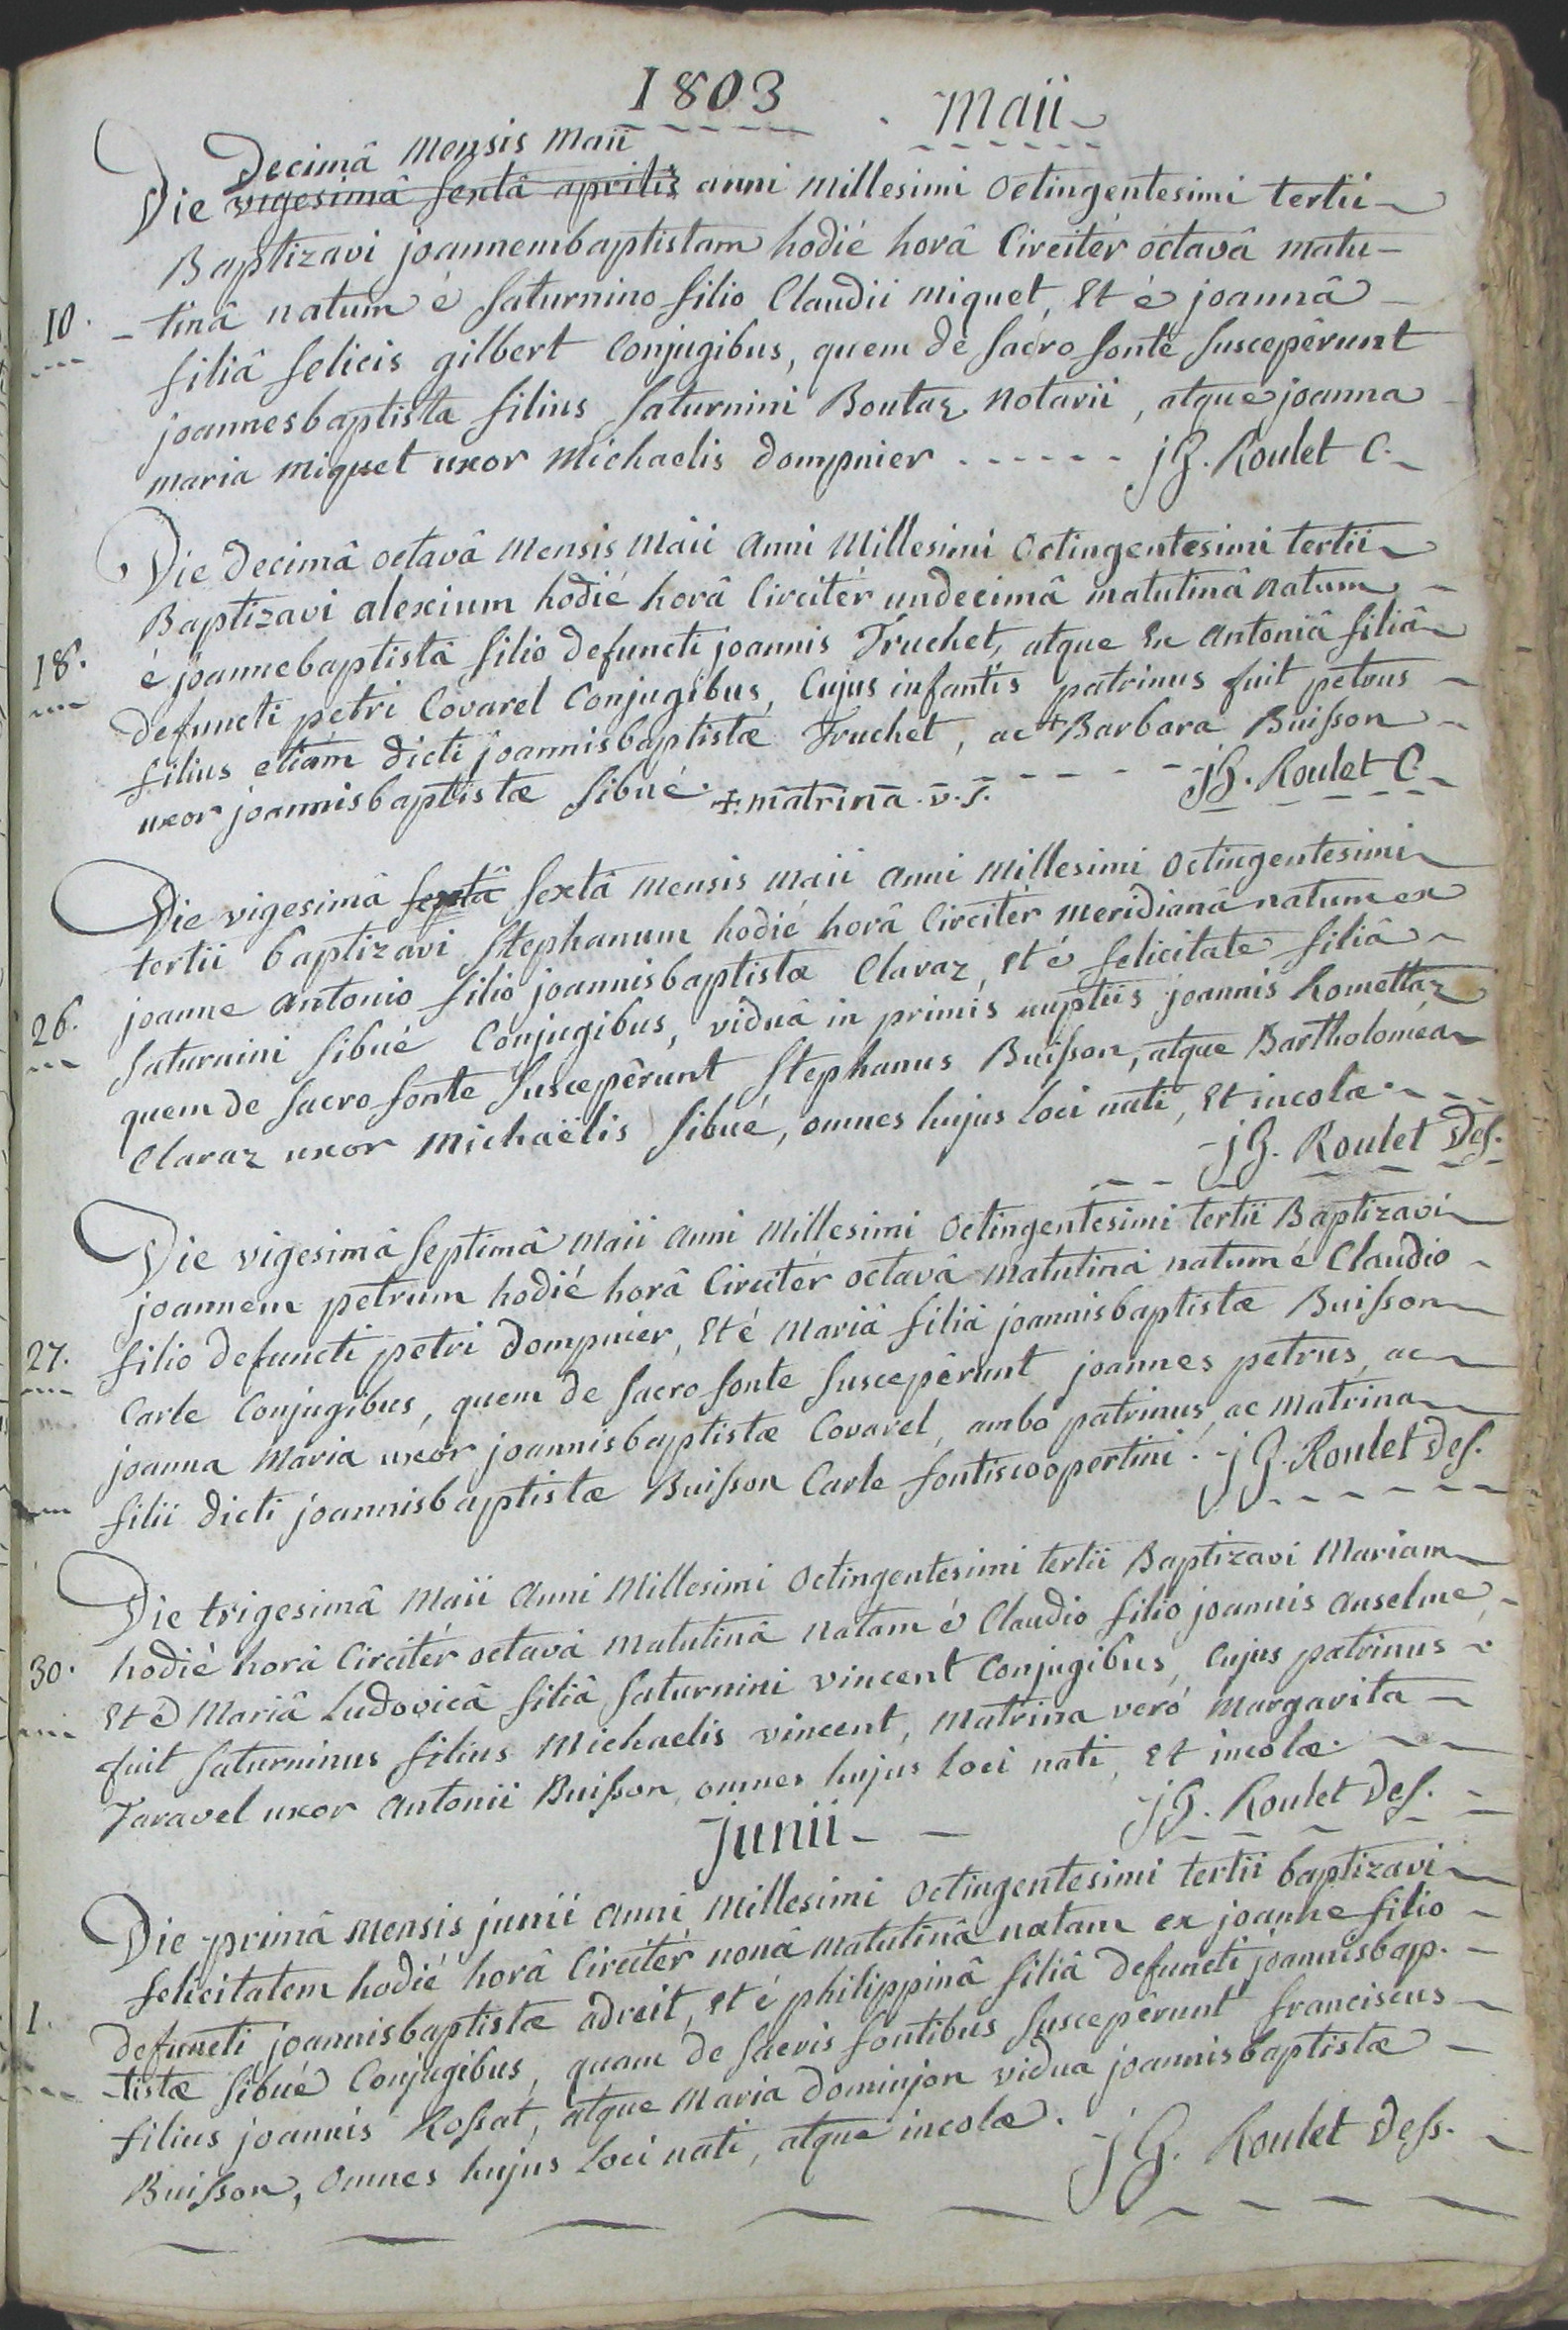 1803
Maii
Decimâ Mensis Maii
Die vigesimâ sextâ aprilis anni Millesimi Octingentesimi tertii
Baptizavi joannembaptistam hodié horâ Circitér óctavâ matu-
10. - tinâ natum é saturnino filio Claudii miquet, Et é joannâ
filiâ felicis gilbert Conjugibus, quem de sacro fonte suscepêrunt
joannesbaptista filius saturnini Boutaz Notarii, atque joanna
maria miquet uxor Michaelis dompnier - - - - - - jG. Roulet C.
Die Decimâ octavâ Mensis Maii Anni Millesimi Octingentesimi tertii
Baptizavi alexium hodié horâ Circitér undecimâ matutinâ natum
18. é joannebaptistâ filio defuncti joannis Truchet, atque Ex Antoniâ filiâ
defuncti petri Covarel Conjugibus, Cujus infantis patrinus fuit petrus
filius etiám dicti joannisbaptistæ Truchet, ac + Barbara Buisson
uxor joannisbaptistæ sibué. +. matrina. v. s. - - - - jG. Roulet C
Die vigesimâ septâ sextâ Mensis Maii Anni Millesimi Octingentesimi
tertii baptizavi Stephanum hodié horâ Circitér Meridianâ natum ex
26. joanne Antonio filio joannisbaptistæ Claraz, Et é felicitate filiâ
saturnini sibué Conjugibus, viduâ in primis nuptiis joannis Komettaz
quem de sacro fonte suscepêrunt Stephanus Buisson, atque Bartholoméa
Claraz uxor Michaëlis sibué, omnes hujus loci nati, Et incolæ. - - -
- jG. Roulet Des.
Die vigesimâ septimâ Maii Anni Millesimi Octingentesimi tertii Baptizavi
joannem petrum hodié horâ Circitér octavâ matutinâ natum é Claudio
27. filio defuncti petri Dompnier, Et é Mariâ filiâ joannisbaptistæ Buisson
Carle Conjugibus, quem de sacro fonte suscepêrunt joannes petrus, ac
joanna Maria uxor joannisbaptistæ Covarel, ambo patrinus, ac Matrina
filii dicti joannisbaptistæ Buisson Carle fontiscoopertini. - jG. Roulet Des.
Die trigesimâ Maii Anni Millesimi Octingentesimi tertii Baptizavi Mariam
30. hodié horâ Circitér octavâ Matutinâ Natam é Claudio filio joannis Anselme,
Et é Mariâ Ludovicâ filiâ saturnini vincent Conjugibus, Cujus patrinus
fuit saturninus filius Michaelis vincent, Matrina veró Margarita
Taravel uxor Antonii Buisson, omnes hujus loci nati, Et incolæ.
jG. Roulet Des.
Junii
Die primâ Mensis junii Anni Millesimi Octingentesimi tertii baptizavi
felicitatem hodié horâ Circitér nonâ Matutinâ natam ex joanne filio
1. defuncti joannisbaptistæ adreit, Et é philippinâ filiâ defuncti joannisbap-
-tistæ sibué Conjugibus, quam de sacris fontibus suscepêrunt franciscus
filius joannis Rossat, atque Maria Dominjon vidua joannisbaptistæ
Buisson, omnes hujus loci nati, atque incolæ. jG. Roulet Dess.